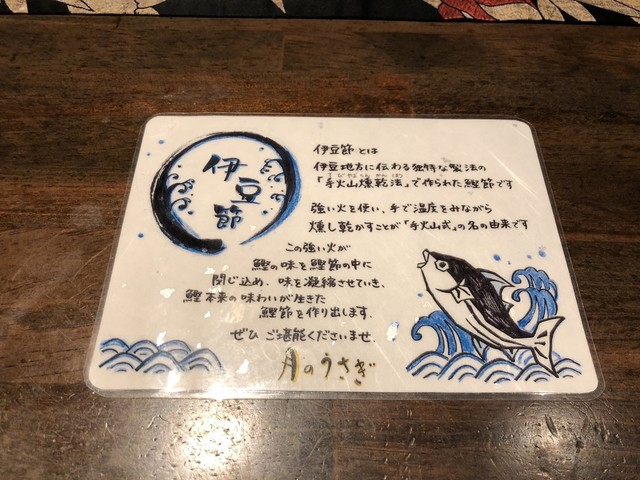 伊豆節
伊豆節とは
伊豆地方に伝わる独特な製法の
「手火山燻乾法」で作られた鰹節です
強い火を使い、手で温度をみながら
燻し乾かすことが「手火山式」の名の由来です
この強い火が
鰹の味を鰹節の中に
閉じ込め、味を凝縮させていき、
鰹本来の味わいが生きた
鰹節を作り出します.
ぜひ ご堪能くださいませ.
月のうさぎ